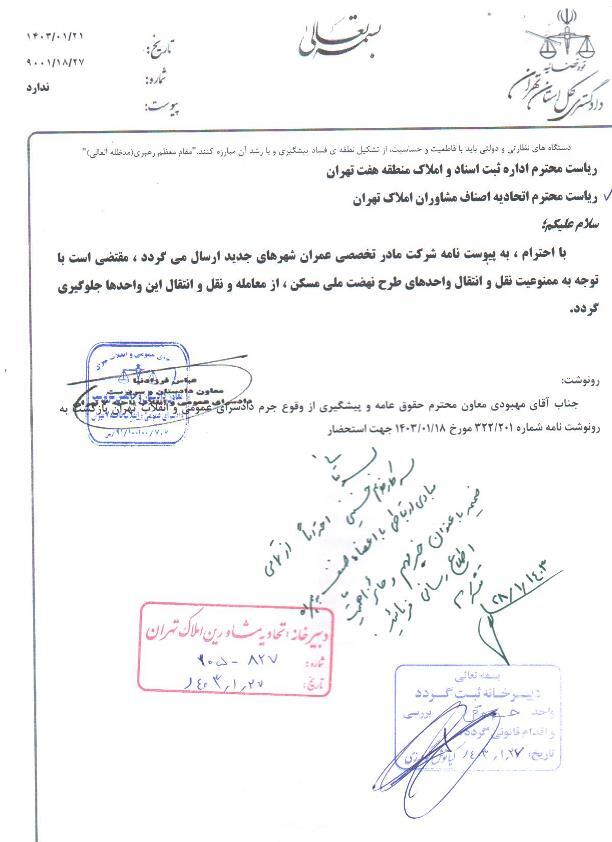 بسمه تعالی
قوه قضائیه
دادگستری کل استان تهران
تاریخ: ۱۴۰۳/۰۱/۲۱
شماره: ۹۰۰۱/۱۸/۲۷
پیوست: ندارد
دستگاه های نظارتی و دولتی باید با قاطعیت و حساسیت، از تشکیل نطفه ی فساد پیشگیری و با رشد آن مبارزه کنند."مقام معظم رهبری(مدظله العالی)"
ریاست محترم اداره ثبت اسناد و املاک منطقه هفت تهران
ریاست محترم اتحادیه اصناف مشاوران املاک تهران
سلام علیکم؛
با احترام ، به پیوست نامه شرکت مادر تخصصی عمران شهرهای جدید ارسال می گردد ، مقتضی است با
توجه به ممنوعیت نقل و انتقال واحدهای طرح نهضت ملی مسکن ، از معامله و نقل و انتقال این واحدها جلوگیری
گردد.
معاون دادستان و سرپرست
دادسرای عمومی و انقلاب ناحیه
رونوشت:
جناب آقای مهبودی معاون محترم حقوق عامه و پیشگیری از وقوع جرم دادسرای عمومی و انقلاب تهران بازگشت به
رونوشت نامه شماره ۳۲۲/۲۰۱ مورخ ۱۴۰۳/۰۱/۱۸ جهت استحضار
احتراماً از تمامی
مبادی ارتباطی با اعضاء صنف
ضمیمه با عنوان خبر مهم و حائز اهمیت
اطلاع رسانی فرمائید.
۱۴۰۳/۱/۲۸
دبیرخانه اتحادیه مشاورین املاک تهران
شماره: ۹۰۵-۸۲۷
تاریخ: ۱۴۰۳،۱،۲۷
بسمه تعالی
دبیرخانه ثبت گردد
واحد حقوقی بررسی
و اقدام قانونی گردد
تاریخ: ۱۴۰۳،۱،۲۷